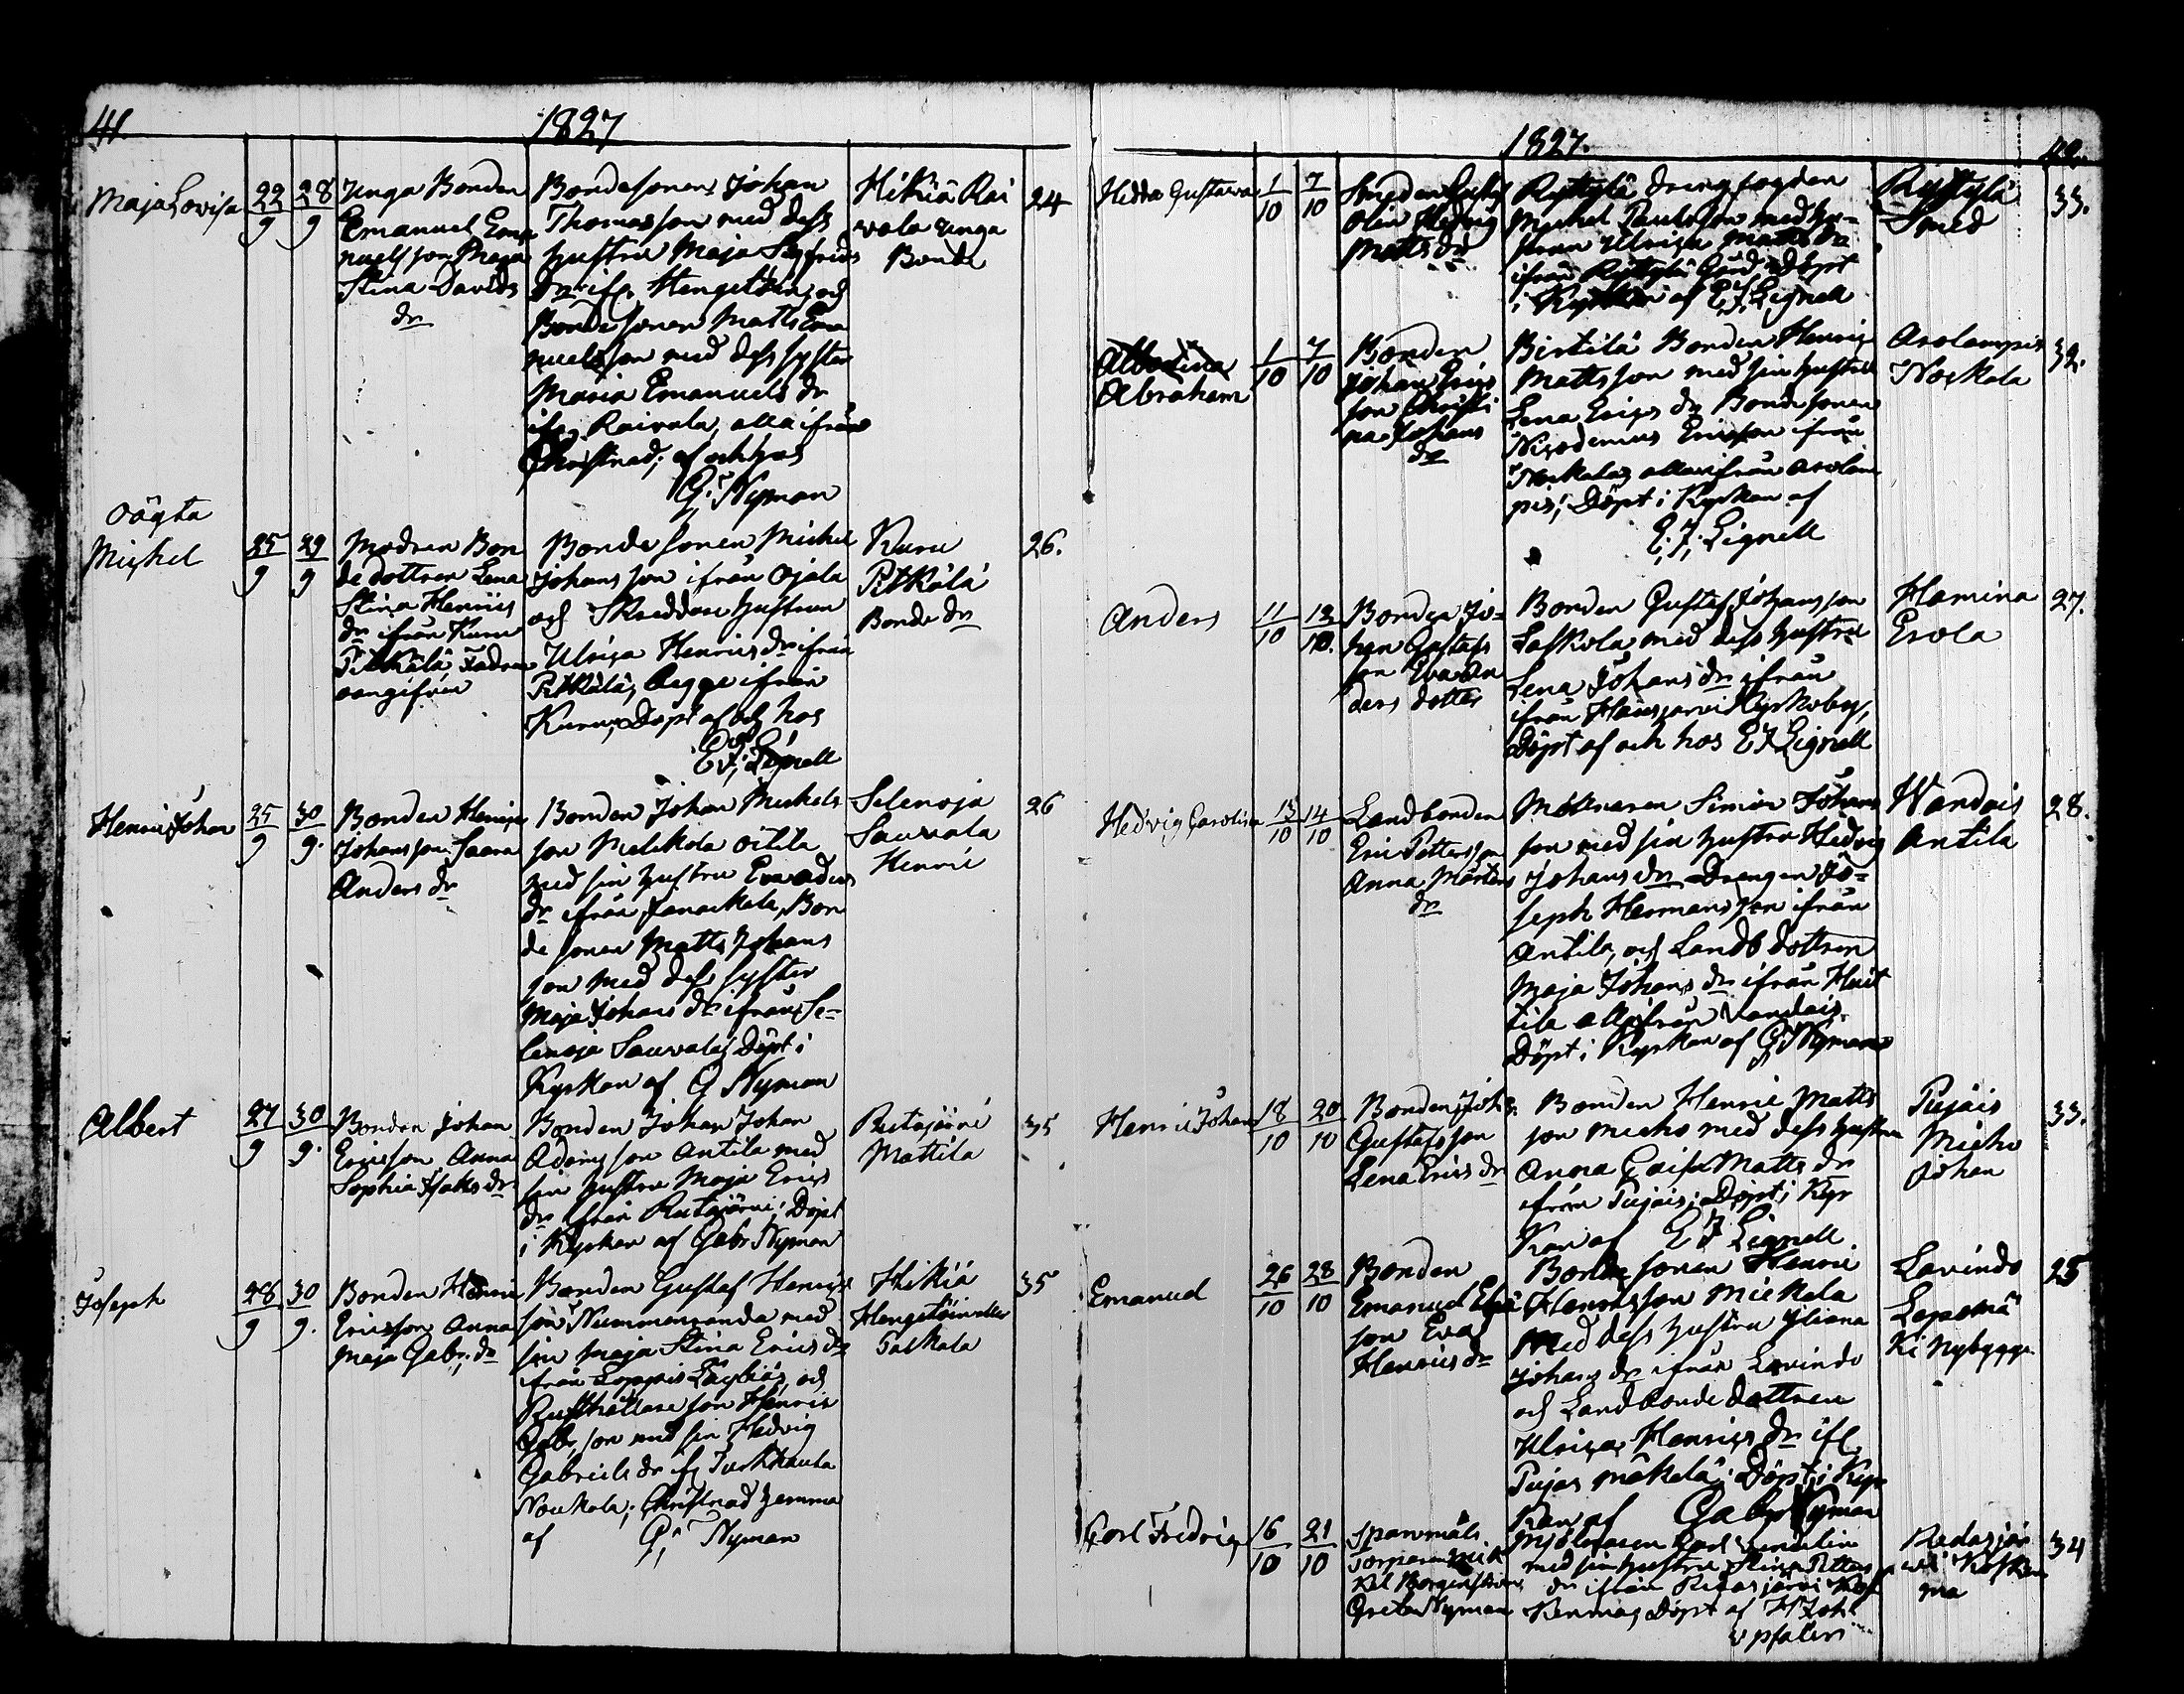 41.
1827
Maja Lovisa
22
9
28
9
Unga Bonden
Emanuel Ema
nuelsson Maja
Stina Davids
dr
Bondesonen Johan
Thomasson med dess
hustru Maja Sigfrids
dr ifr. Hengetän, och
Bonde sonen Matts Ema
nuelsson med dess syster
Maria Emanuels dr
ifr. Raivala, alla ifrån
af och hos
G. Nyman
Hikiä Rai
vala unga
Bonde
24
oägta
Michel
25
9
29
9
Modren Bon
de dottren Lena
Stina Henrics
dr ifrån Kuru
Pitkälä Fadren
oangifven
Bonde sonen Michel
Johansson ifrån Ojala
och Skreddare hustrun
Ulrica Henrics dr ifrån
Pitkälä, begge ifrån
Kuru, Döpt af och hos
E. J. Lignell
Kuru
Pitkälä
Bonde dr
26.
Henric Johan
25
9
30
9.
Bonden Henric
Johansson Saara
Anders dr
Bonden Johan Michels
son Melkola
med sin hustru Eva
dr ifrån Janackala, Bon
de sonen Matts Johans
son med dess syster
Maja Johans dr ifrån Se-
lenoja Sauvala; Döpt i
Kyrkan af G Nyman
Selenoja
Sauvala
Henric
26
Albert
27
9
30
9.
Bonden Johan
Ericsson Anna
Sophia Isaks dr
Bonden Johan Johan
Adamsson Antila med
sin hustru Maja Erics
dr ifrån Rutajärvi; Döpt
i Kyrkan af Gabr Nyman
Rutajärvi
Mattila
35
Joseph
28
9
30
9.
Bonden Henric
Ericsson Anna
Maja Gabr. dr
Bonden Gustaf Henrics
son Nummenranda med
sin Maja Stina Erics dr
ifrån Loppis Läyliäs, och
Rusthållare son Henric
Gabr. son med sin Hedvig
Gabriels dr if. Turkhauta
Noukala; Christnad hemma
af G. Nyman
Hikiä
Hengetöin eller
Taskala
35
1827.
42.
Hedda Gustava
1
10
7
10
Smeden
Olin Hedvig
Matts dr
Ryttylä drengfogden
Michel Paulsson med hu-
strun Ulrica Matts dr
ifrån Ryttylä Gård; Döpt
i Kyrkan af E. J. Lignell
Ryttylä
Smed
33.
Abraham
1
10
7
10
Bonden
Johan Erics
son Christi
na Johans
dr
Birtilä Bonden Henric
Mattsson med sin hustru
Lena Erics dr Bonde sonen
Nicodemus Ericsson ifrån
Noskala, alla ifrån Arolam
pis; Döpt i Kyrkan af
E. J. Lignell
Arolampis
Noskala
32.
Anders
11
10
12
10.
Bonden Jo-
han Gustafs
son Eva An
ders dotter
Bonden Gustaf Johansson
Laskola med dess hustru
Lena Johans dr ifrån
ifrån Hausjärvi Kyrkoby,
Döpt af och hos E J Lignell
Hamina
Erola
27.
Hedvig Carolina
13
10
14
10
Landbonden
Eric Pettersson
Anna Mårtens
dr
Mölnaren Simon Johans
son med sin hustru Hedvig
Johans dr Drengen Jo-
seph Hermansson ifrån
Antila, och Landb dottren
Maja Johans dr ifrån Huit
tila all ifrån Vandais.
Döpt i Kyrkan af G Nyman
Wandais
Antila
28.
Henric Johan
18
10
20
10
Bonden Joh.
Gustafsson
Lena Erics dr
Bonden Henric Matts
son Micko med dess hustru
Anna Caisa Matts dr
ifrån Pujais; Döpt i Kyr
kan af E J Lignell
Pujais
Micko
Johan
33.
Emanuel
26
10
28
10
Bonden
Emanuel
son Eva
Henrics dr
Bonde sonen Henric
Henricsson Mickela
med dess hustru Uliana
Johans dr ifrån Lavindo
och Landbonde dottren
Ulrica Henrics dr if.
Pujas Mäkelä; Döpt i Kyr
kan af Gabr Nyman
Lavindo
Lepomä
ki Nybygge
25
Carl Fredric
16
10
21
10
Sparrmåls
Torparen Mic
kel Borgenström
Greta Nyman
Mjölnaren Carl Vendelin
med sin hustru Stina Petters
dr ifrån Ridasjärvi Kos
kenma; Döpt af H Joh
Upfalen
Ridasjär
vi Kosken
ma
34